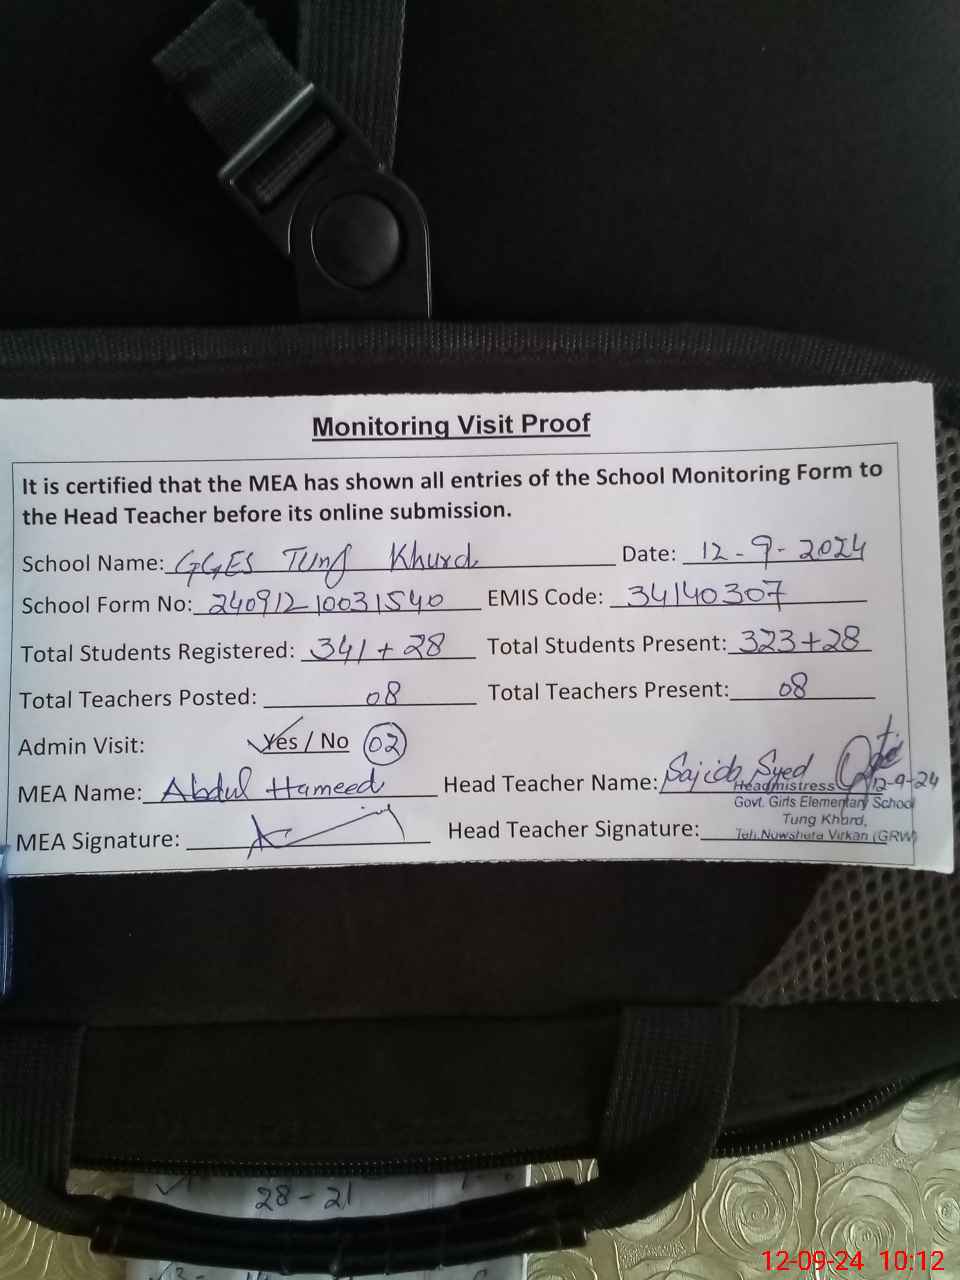 Monitoring Visit Proof
It is certified that the MEA has shown all entries of the School Monitoring Form to
the Head Teacher before its online submission.
School Name: GGES Tung Khurd Date: 12-9-2024
School Form No: 240912 10031540 EMIS Code: 34140307
Total Students Registered: 341 + 28 Total Students Present: 323+28
Total Teachers Posted: 08 Total Teachers Present: 08
Admin Visit: Yes / No 02
MEA Name: Abdul Hameed Head Teacher Name: Sajida Syed
12-9-24
MEA Signature: Head Teacher Signature:
Headmistress
Govt. Girls Elementary School
Tung Khurd,
Teh. Nowshera Virkan (GRW)
28-21
12-09-24 10:12